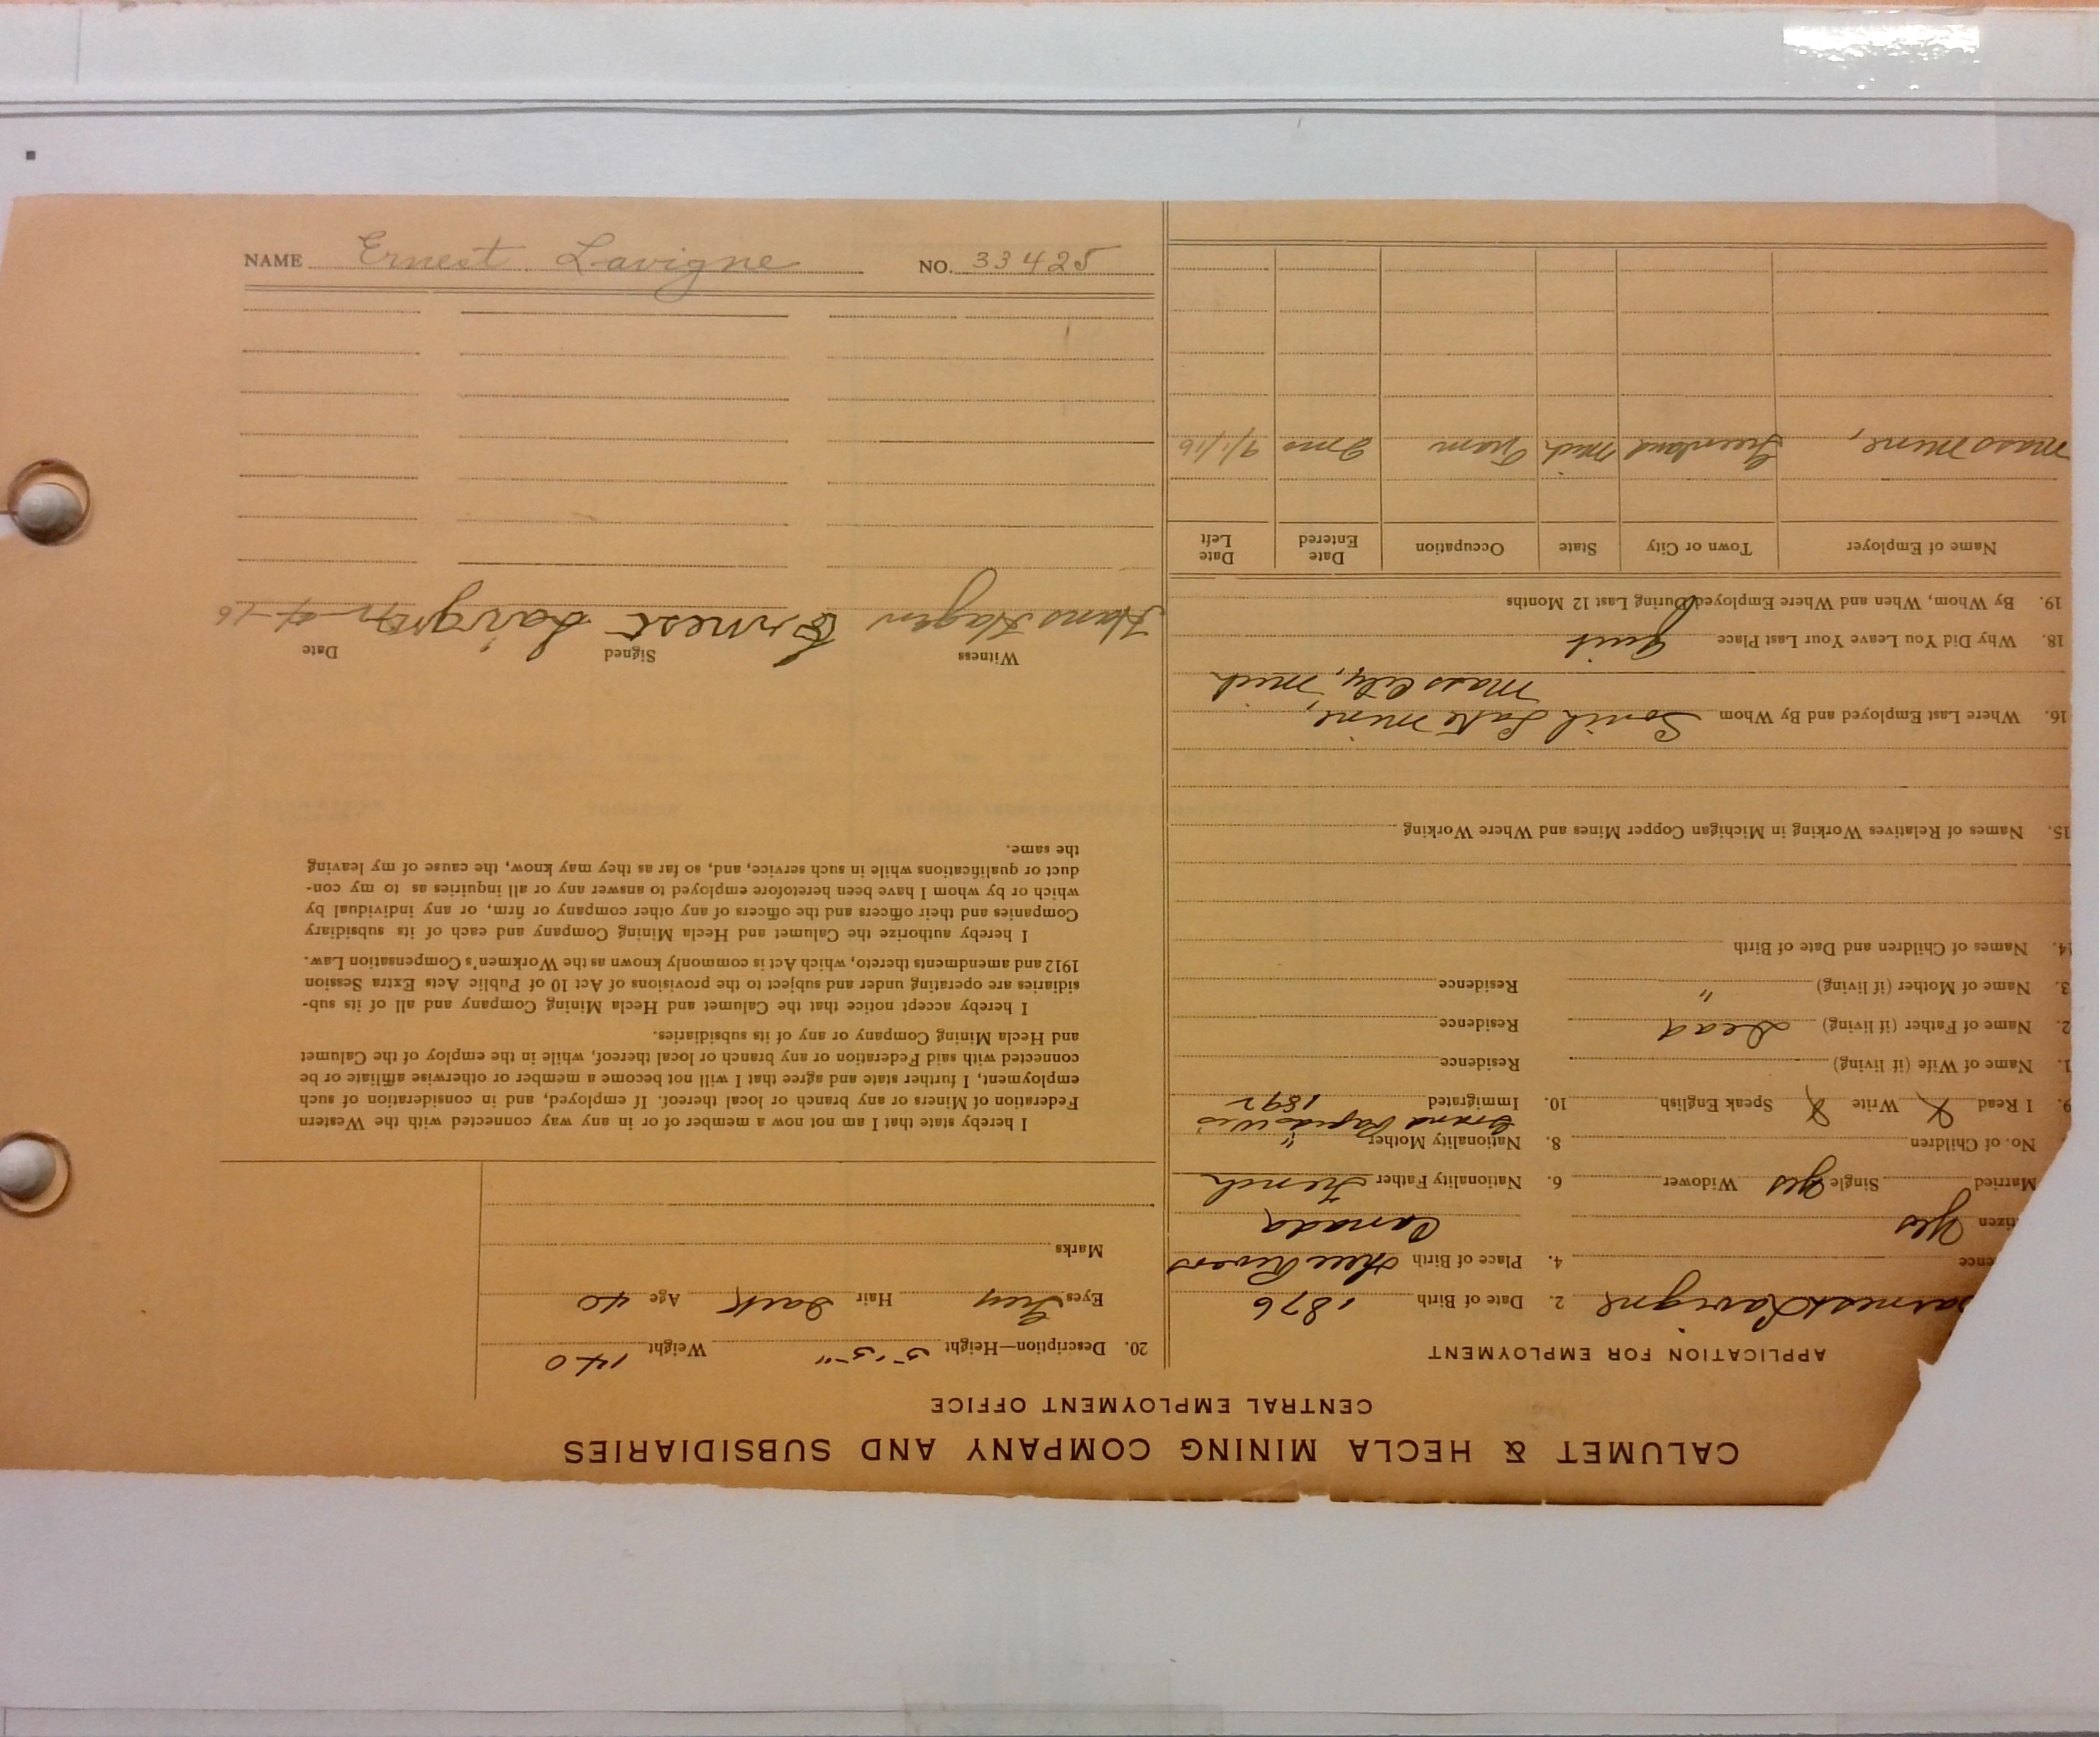 CALUMET & HECLA MINING COMPANY AND SUBSIDIARIES
CENTRAL EMPLOYMENT OFFICE
APPLICATION FOR EMPLOYMENT
arnest Lavigne 2. Date of Birth 1876
ence 4. Place of Birth Three Rivers
tizen Yes Canada
Married Single Yes Widower 6. Nationality Father French
No. of Children 8. Nationality Mother "
Grand Rapids Wis
9. I Read X Write X Speak English 10. Immigrated 1892
1. Name of Wife (if living) Residence
2. Name of Father (if living) Dead Residence
3. Name of Mother (if living) " Residence
14. Names of Children and Date of Birth
15. Names of Relatives Working in Michigan Copper Mines and Where Working
16. Where Last Employed and By Whom South Lake mine,
Mass City, Mich
18. Why Did You Leave Your Last Place quit
19. By Whom, When and Where Employed During Last 12 Months
Name of Employer Town or City State Occupation Date Entered Date Left
Mass Mine, Greenland Mich Tram 2 mos 9/1/16
20. Description—Height 5'5" Weight 140
Eyes Grey Hair Dark Age 40
Marks
I hereby state that I am not now a member of or in any way connected with the Western
Federation of Miners or any branch or local thereof. If employed, and in consideration of such
employment, I further state and agree that I will not become a member or otherwise affiliate or be
connected with said Federation or any branch or local thereof, while in the employ of the Calumet
and Hecla Mining Company or any of its subsidiaries.
I hereby accept notice that the Calumet and Hecla Mining Company and all of its sub-
sidiaries are operating under and subject to the provisions of Act 10 of Public Acts Extra Session
1912 and amendments thereto, which Act is commonly known as the Workmen's Compensation Law.
I hereby authorize the Calumet and Hecla Mining Company and each of its subsidiary
Companies and their officers and the officers of any other company or firm, or any individual by
which or by whom I have been heretofore employed to answer any or all inquiries as to my con-
duct or qualifications while in such service, and, so far as they may know, the cause of my leaving
the same.
Witness Signed Date
Hans Hagen Ernest Lavigne 4-16
NAME Ernest Lavigne NO. 33425